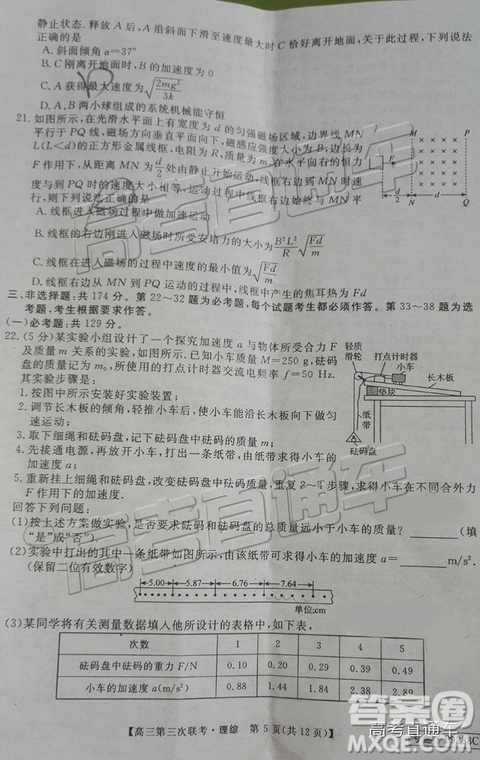 静止状态. 释放 A 后, A 沿斜面下滑至速度最大时 C 恰好离开地面, 关于此过程, 下列说法
正确的是
A. 斜面倾角 α=37°
B. C 刚离开地面时, B 的加速度为 0
C. A 获得最大速度
D. A、B 两小球组成的系统机械能守恒
21. 如图所示, 在光滑水平面上有宽度为 d 的匀强磁场区域, 边界线 MN
平行于 PQ 线, 磁场方向垂直平面向下, 磁感应强度大小为 B, 边长为
L(L<d) 的正方形金属线框, 电阻为 R, 质量为 m, 在水平向右的恒力
F 作用下, 从距离 MN 为 d/2 处由静止开始运动, 线框右边到 MN 时速
度与到 PQ 时的速度大小相等, 运动过程中线框右边始终与 MN 平
行, 则
A. 线框进入磁场过程中做加速运动
B. 线框的右边刚进入磁场时所受安培力的大小为 B²L²/R √(Fd/m)
C. 线框在进入磁场的过程中速度的最小值为 √(Fd/m)
D. 线框右边从 MN 到 PQ 运动的过程中, 线框中产生的焦耳热为 Fd
三、非选择题: 共 174 分. 第 22～32 题为必考题, 每个试题考生都必须作答. 第 33～38 题为选
考题, 考生根据要求作答.
(一)必考题: 共 129 分.
22. (5 分)某实验小组设计了一个探究加速度 a 与物体所受合力 F
及质量 m 关系的实验, 如图所示, 已知小车质量 M=250 g, 砝码
盘的质量记为 m₀, 所使用的打点计时器交流电频率 f=50 Hz.
其实验步骤是:
1. 按图中所示安装好实验装置;
2. 调节长木板的倾角, 轻推小车后, 使小车能沿长木板向下做匀
速运动;
3. 取下细绳和砝码盘, 记下砝码盘中砝码的质量 m;
4. 先接通电源, 再放开小车, 打出一条纸带, 由纸带求得小车的加
速度 a;
5. 重新挂上细绳和砝码盘, 改变砝码盘中砝码质量, 重复 2～4 步骤, 求得小车在不同合外力
F 作用下的加速度.
回答下列问题:
(1)按上述方案做实验, 是否要求砝码和砝码盘的总质量远小于小车的质量? (填
"是"或"否").
(2)实验中打出的其中一条纸带如图所示, 由该纸带可求得小车的加速度 a= m/s².
(保留二位有效数字)
(3)某同学将有关测量数据填入他所设计的表格中, 如下表,
次数 1 2 3 4 5
砝码盘中砝码的重力 F/N 0.10 0.20 0.29 0.39 0.49
小车的加速度 a/m·s⁻² 0.88 1.44 1.84 2.38 2.89
【高三第三次联考·理综 第 5 页(共 12 页)】
M
P
F
d/2
N
d
Q
轻质
滑轮
打点计时器
小车
长木板
垫块
纸
带
砝码盘
5.00
5.87
6.76
7.64
单位:cm
高考直通车
高考直通车
高考直通车
答案圈
MXQE.COM